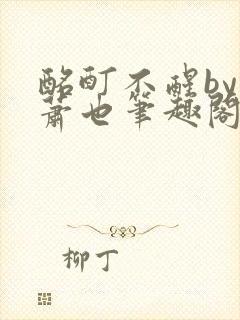 酩酊不醒by
萧也筆趣阁
柳丁